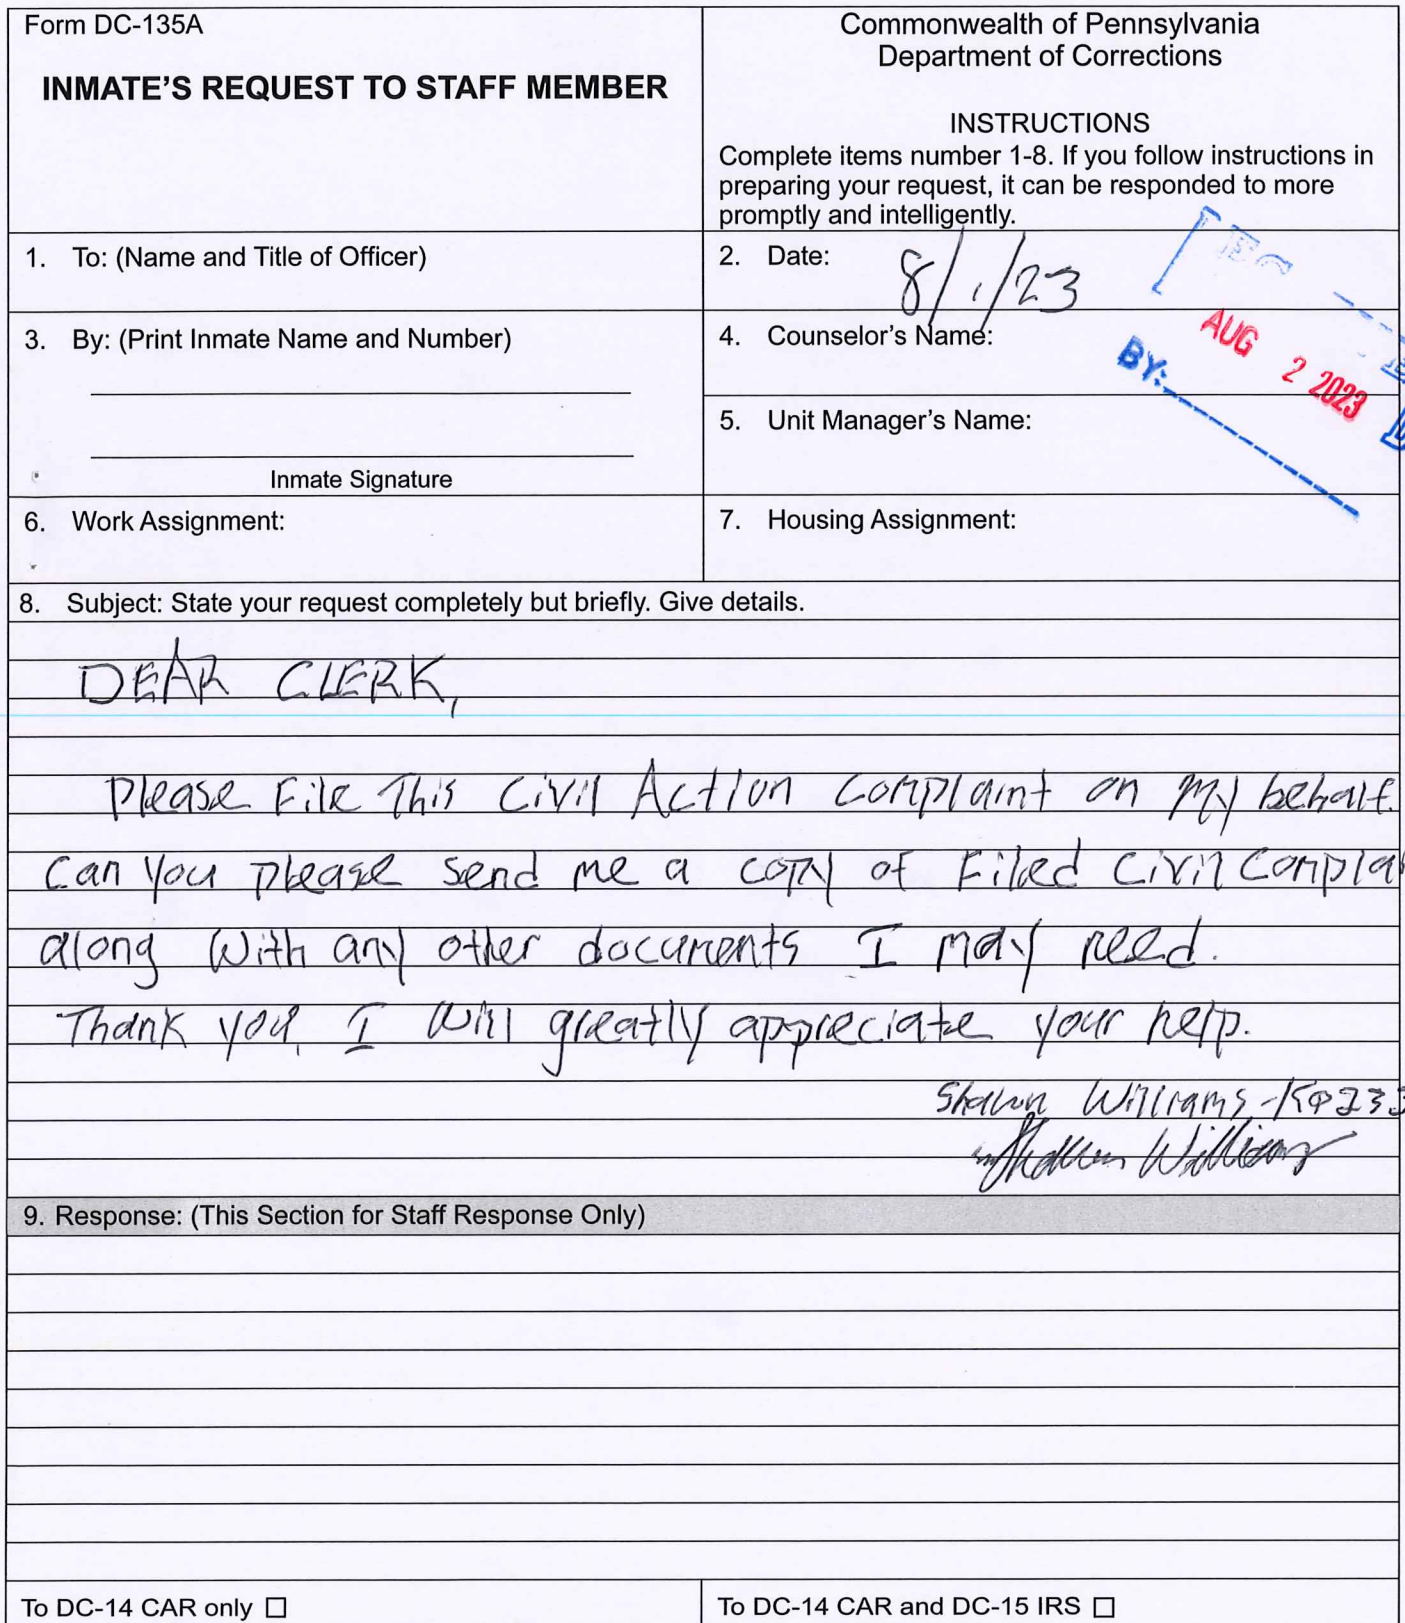 Form DC-135A
INMATE'S REQUEST TO STAFF MEMBER
Commonwealth of Pennsylvania
Department of Corrections
INSTRUCTIONS
Complete items number 1-8. If you follow instructions in
preparing your request, it can be responded to more
promptly and intelligently.
1. To: (Name and Title of Officer)
2. Date: 8/1/23
3. By: (Print Inmate Name and Number)
Inmate Signature
4. Counselor's Name:
AUG 2 2023
BY:
5. Unit Manager's Name:
6. Work Assignment:
7. Housing Assignment:
8. Subject: State your request completely but briefly. Give details.
DEAR CLERK,
Please File This Civil Action Complaint on My behalf.
Can You please send me a copy of Filed Civil Compla
along With any other documents I may need.
Thank you, I Will greatly appreciate your help.
Shawn Williams
Shawn Williams
9. Response: (This Section for Staff Response Only)
To DC-14 CAR only ☐
To DC-14 CAR and DC-15 IRS ☐